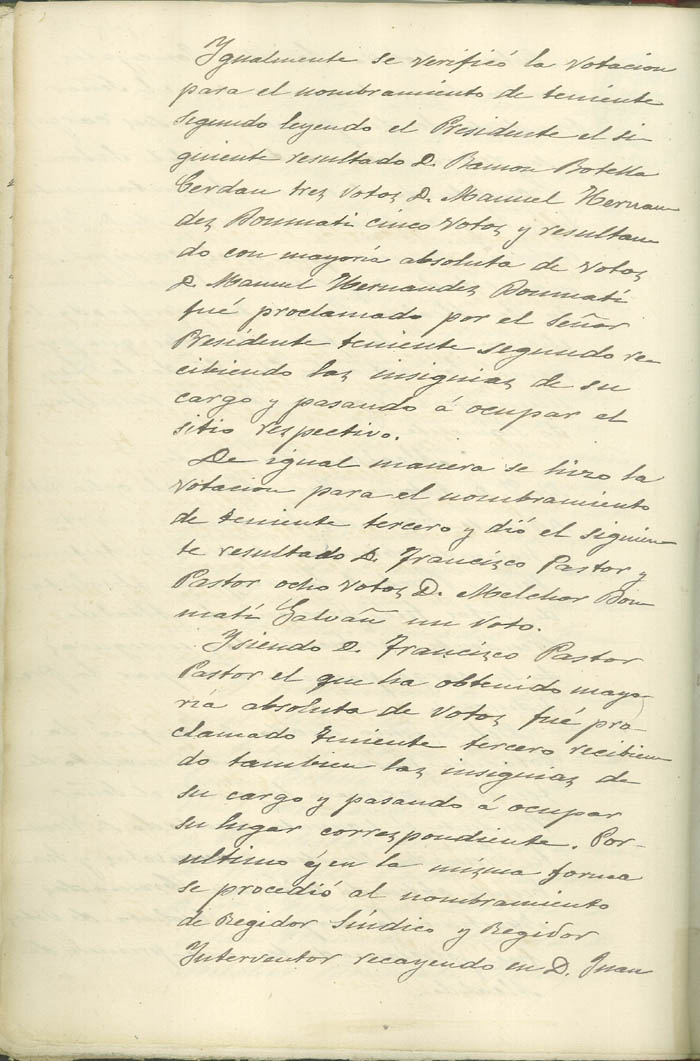 Igualmente se verificó la votacion
para el nombramiento de teniente
segundo leyendo el Presidente el si-
guiente resultado D. Ramon Botella
Cerdan tres votos D. Manuel Hernan
dez Bonmati cinco votos y resultan
do con mayoría absoluta de votos
D. Manuel Hernandez Bonmati
fué proclamado por el Señor
Presidente teniente segundo re-
cibiendo las insignias de su
cargo y pasando á ocupar el
sitio respectivo.
De igual manera se hizo la
votacion para el nombramiento
de teniente tercero y dió el siguien
te resultado D. Francisco Pastor y
Pastor ocho votos D. Melchor Bon
matí Galvañ un voto.
Y siendo D. Francisco Pastor
Pastor el que ha obtenido mayo-
ría absoluta de votos fué pro-
clamado teniente tercero recibien
do tambien las insignias de
su cargo y pasando á ocupar
su lugar correspondiente. Por-
ultimo y en la misma forma
se procedió al nombramiento
de Regidor Síndico y Regidor
Interventor recayendo en D. Juan